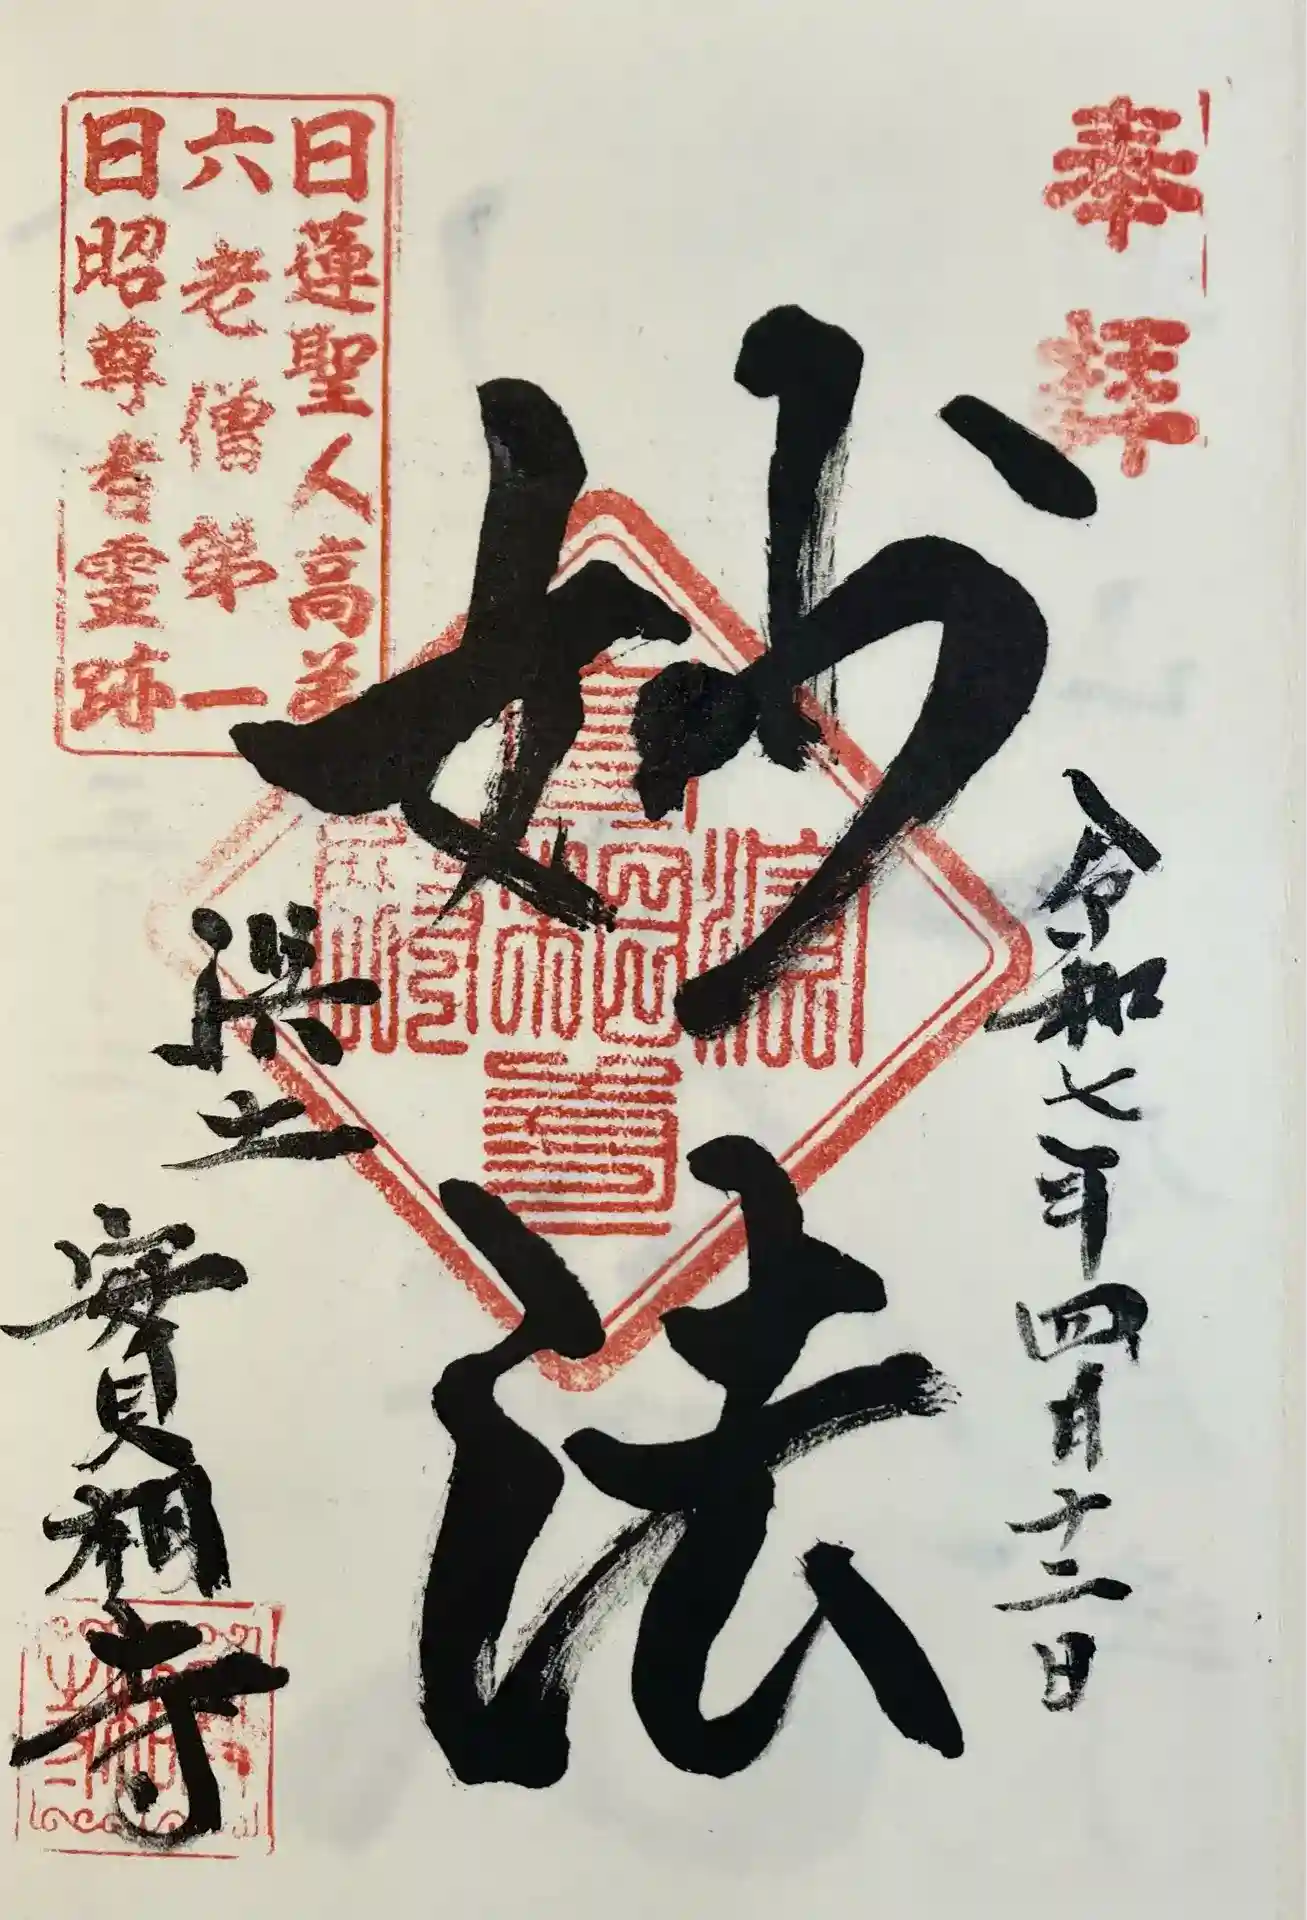 奉拝
令和七年四月十二日
妙法
日蓮聖人高弟
六老僧第一
日昭尊者霊跡
濵土
實相寺